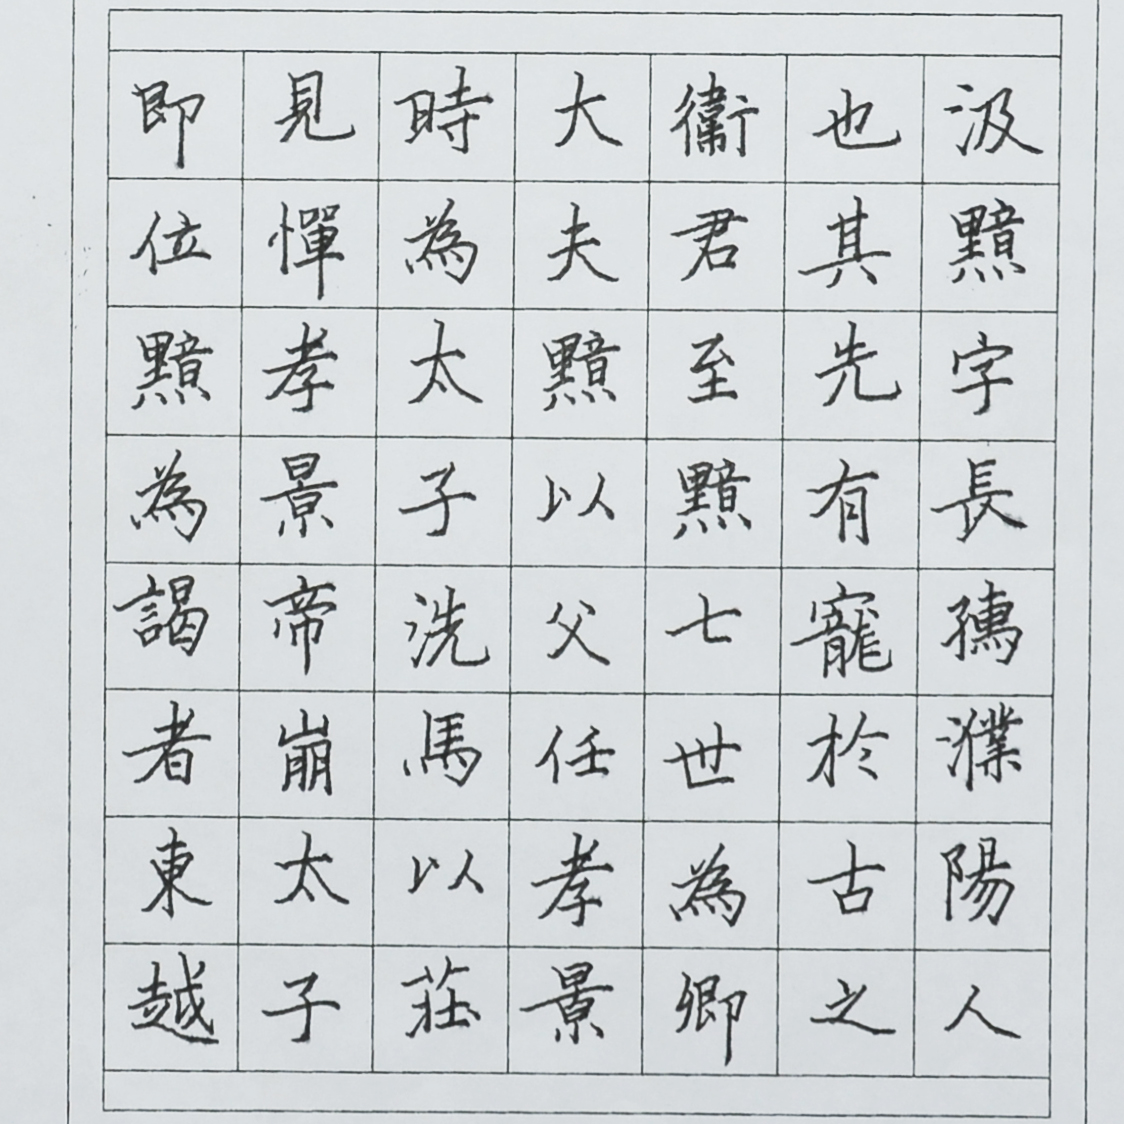 汲黯字長孺濮陽人
也其先有寵於古之
衞君至黯七世為卿
大夫黯以父任孝景
時為太子洗馬以莊
見憚孝景帝崩太子
即位黯為謁者東越